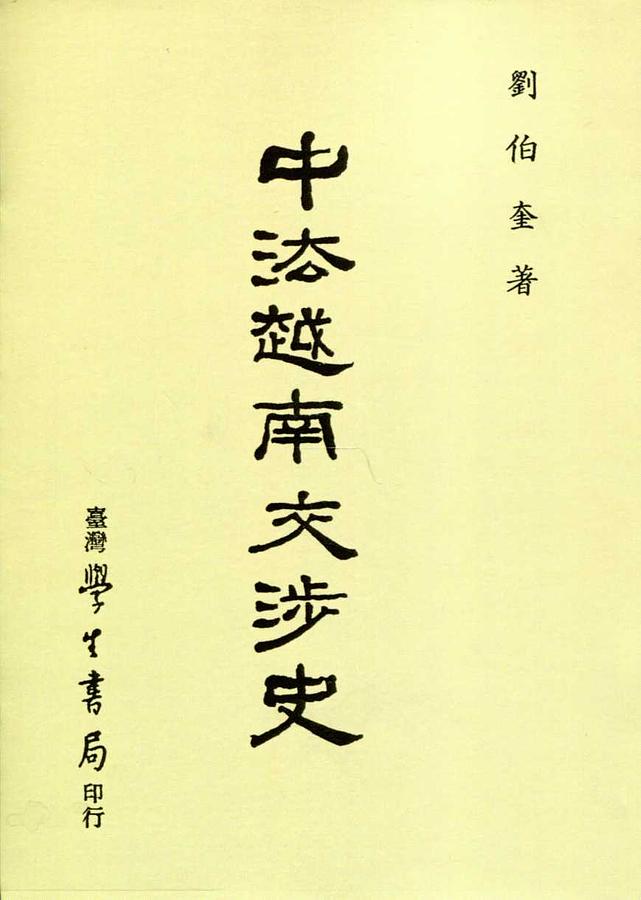 劉伯奎著
中法越南交涉史
臺灣學生書局印行